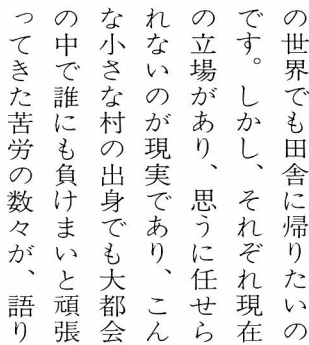 の世界でも田舎に帰りたいの
です。しかし、それぞれ現在
の立場があり、思うに任せら
れないのが現実であり、こん
な小さな村の出身でも大都会
の中で誰にも負けまいと頑張
ってきた苦労の数々が、語り